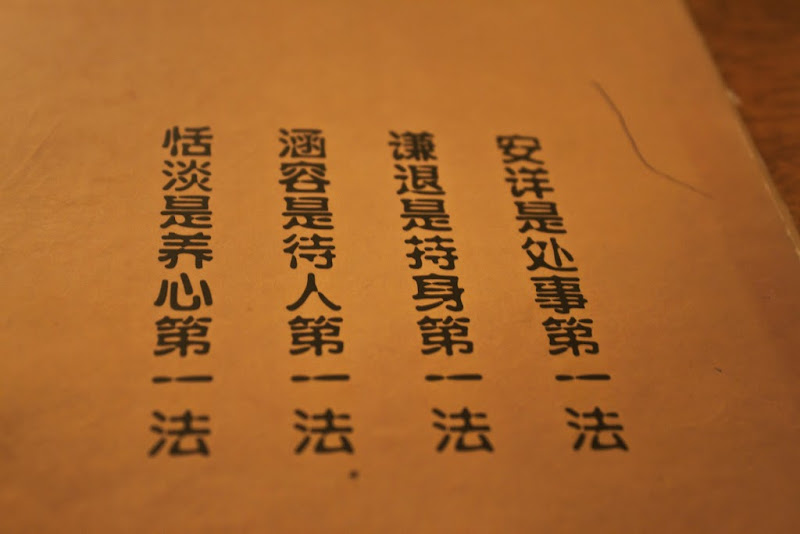 安详是处事第一法
谦退是持身第一法
涵容是待人第一法
恬淡是养心第一法